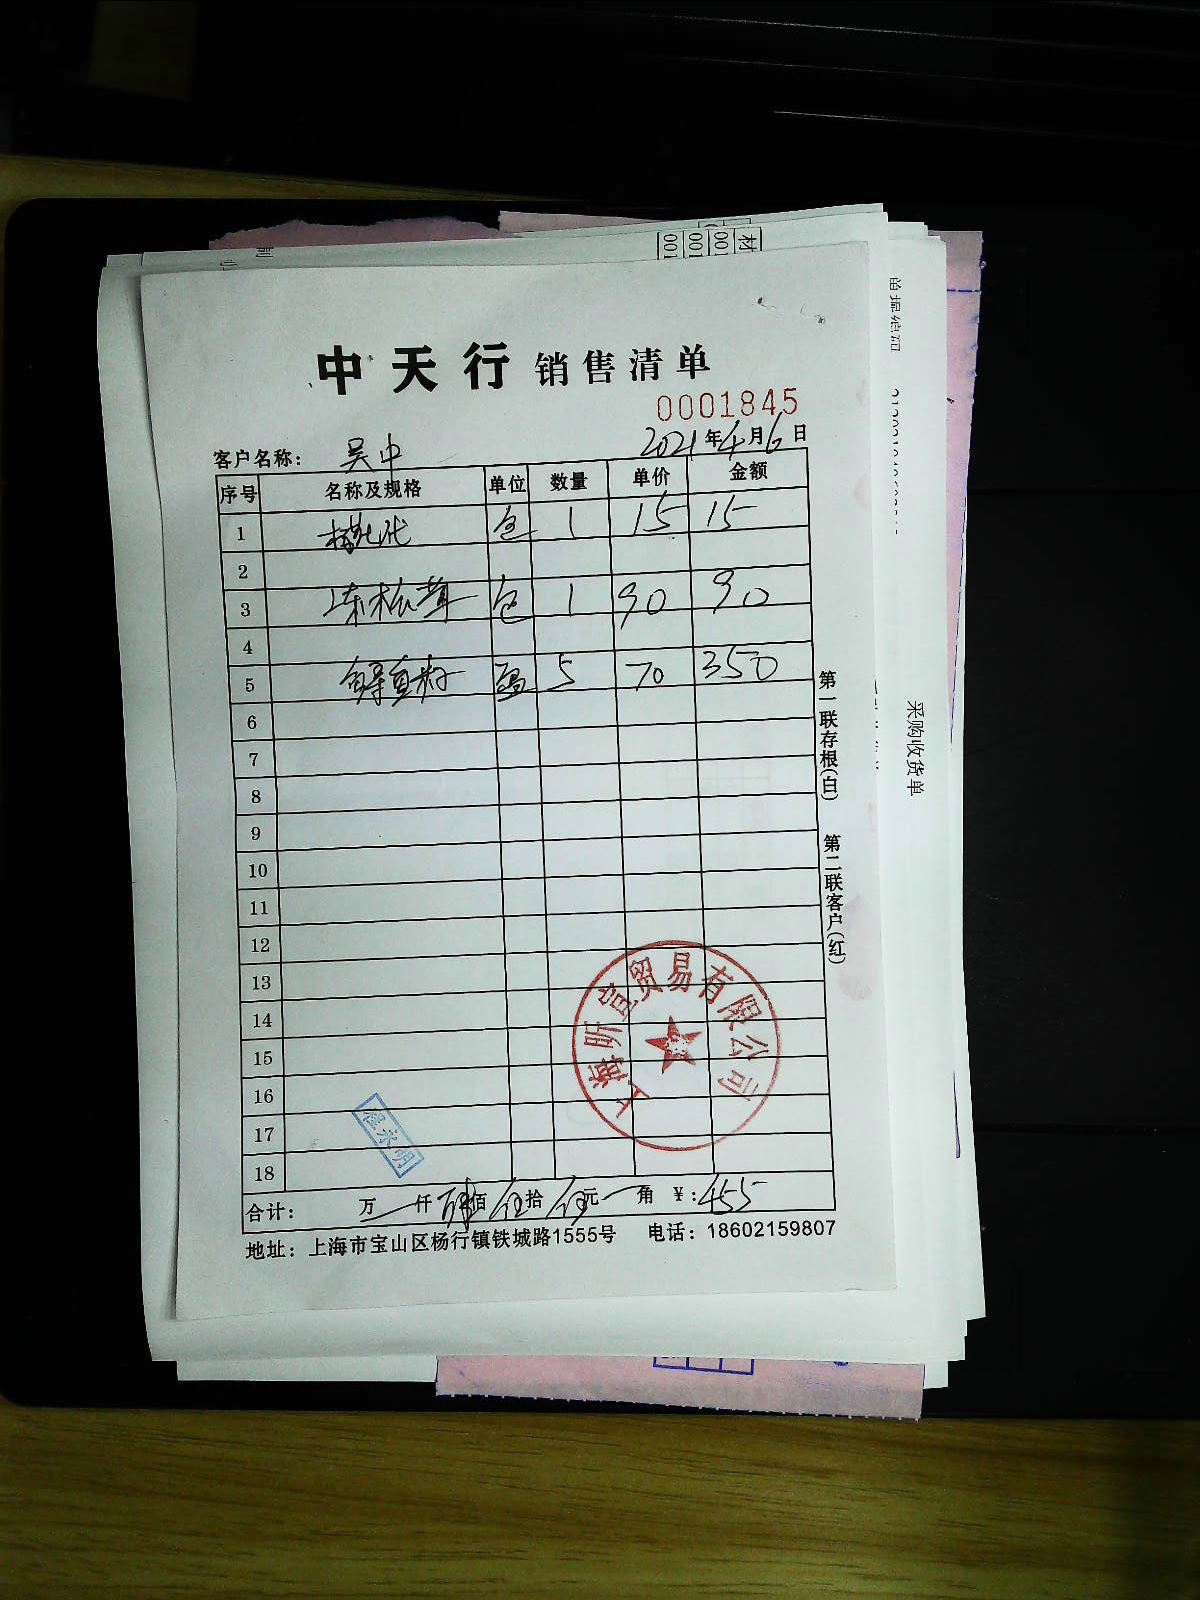 中天行 销售清单
0001845
客户名称: 吴中
2021年4月6日
序号 名称及规格 单位 数量 单价 金额
1 包 1 15 15
2
3 冻松茸 包 1 90 90
4
5 5 70 350
6
7
8
9
10
11
12
13
14
15
16
17
18
合计: 万 一 仟 肆佰 伍拾 伍元 一 角 ¥: 455
地址: 上海市宝山区杨行镇铁城路1555号 电话: 18602159807
第一联存根(白) 第二联客户(红)
有限公司
程永明
采购收货单
材
001
001
001